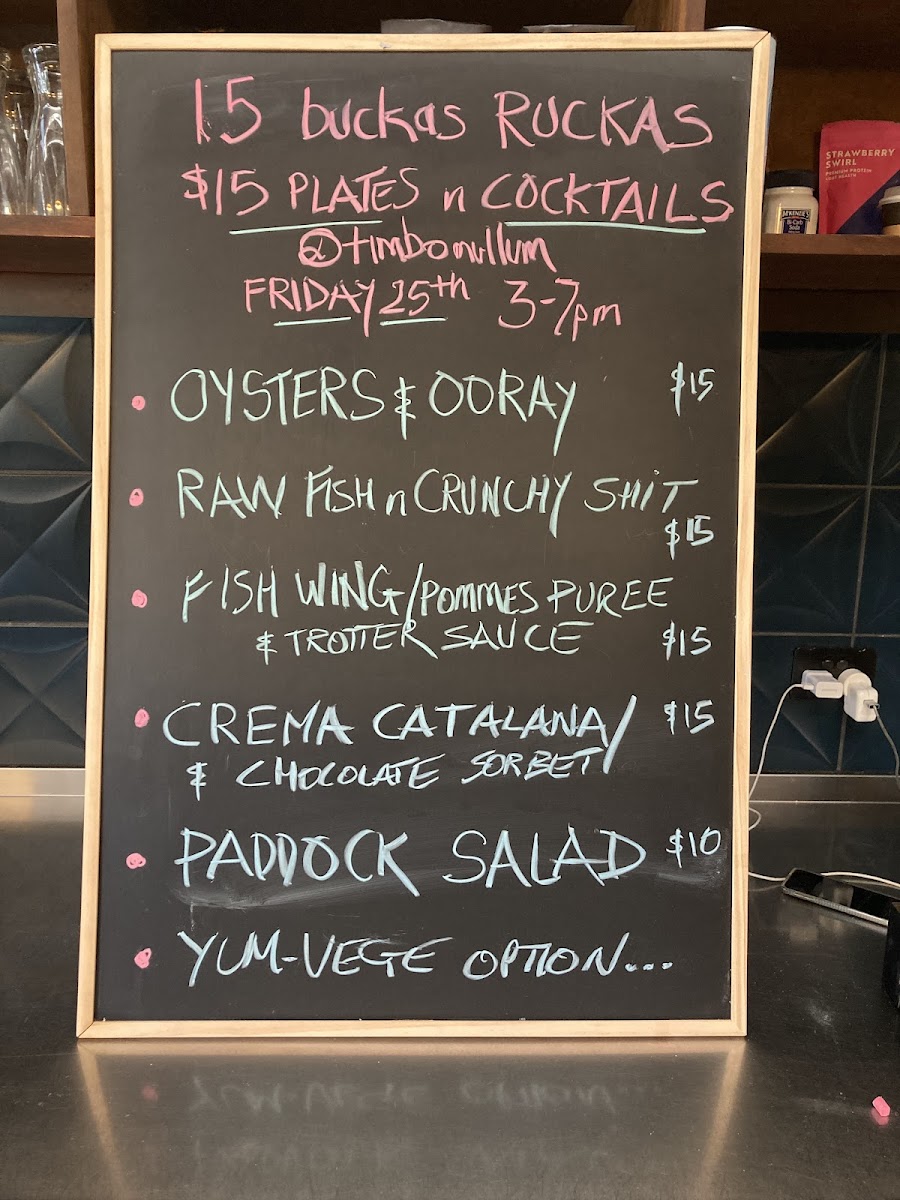 15 buckas RUCKAS
$15 PLATES n COCKTAILS
@timbonullum
FRIDAY 25th 3-7pm
• OYSTERS & OORAY $15
• RAW FISH n CRUNCHY SHIT
$15
• FISH WING/POMMES PUREE
& TROTTER SAUCE $15
• CREMA CATALANA/ $15
& CHOCOLATE SORBET
• PADDOCK SALAD $10
• YUM-VEGE OPTION...
STRAWBERRY
SWIRL
PREMIUM PROTEIN
McKENZIE'S
Bi-Carb
Soda